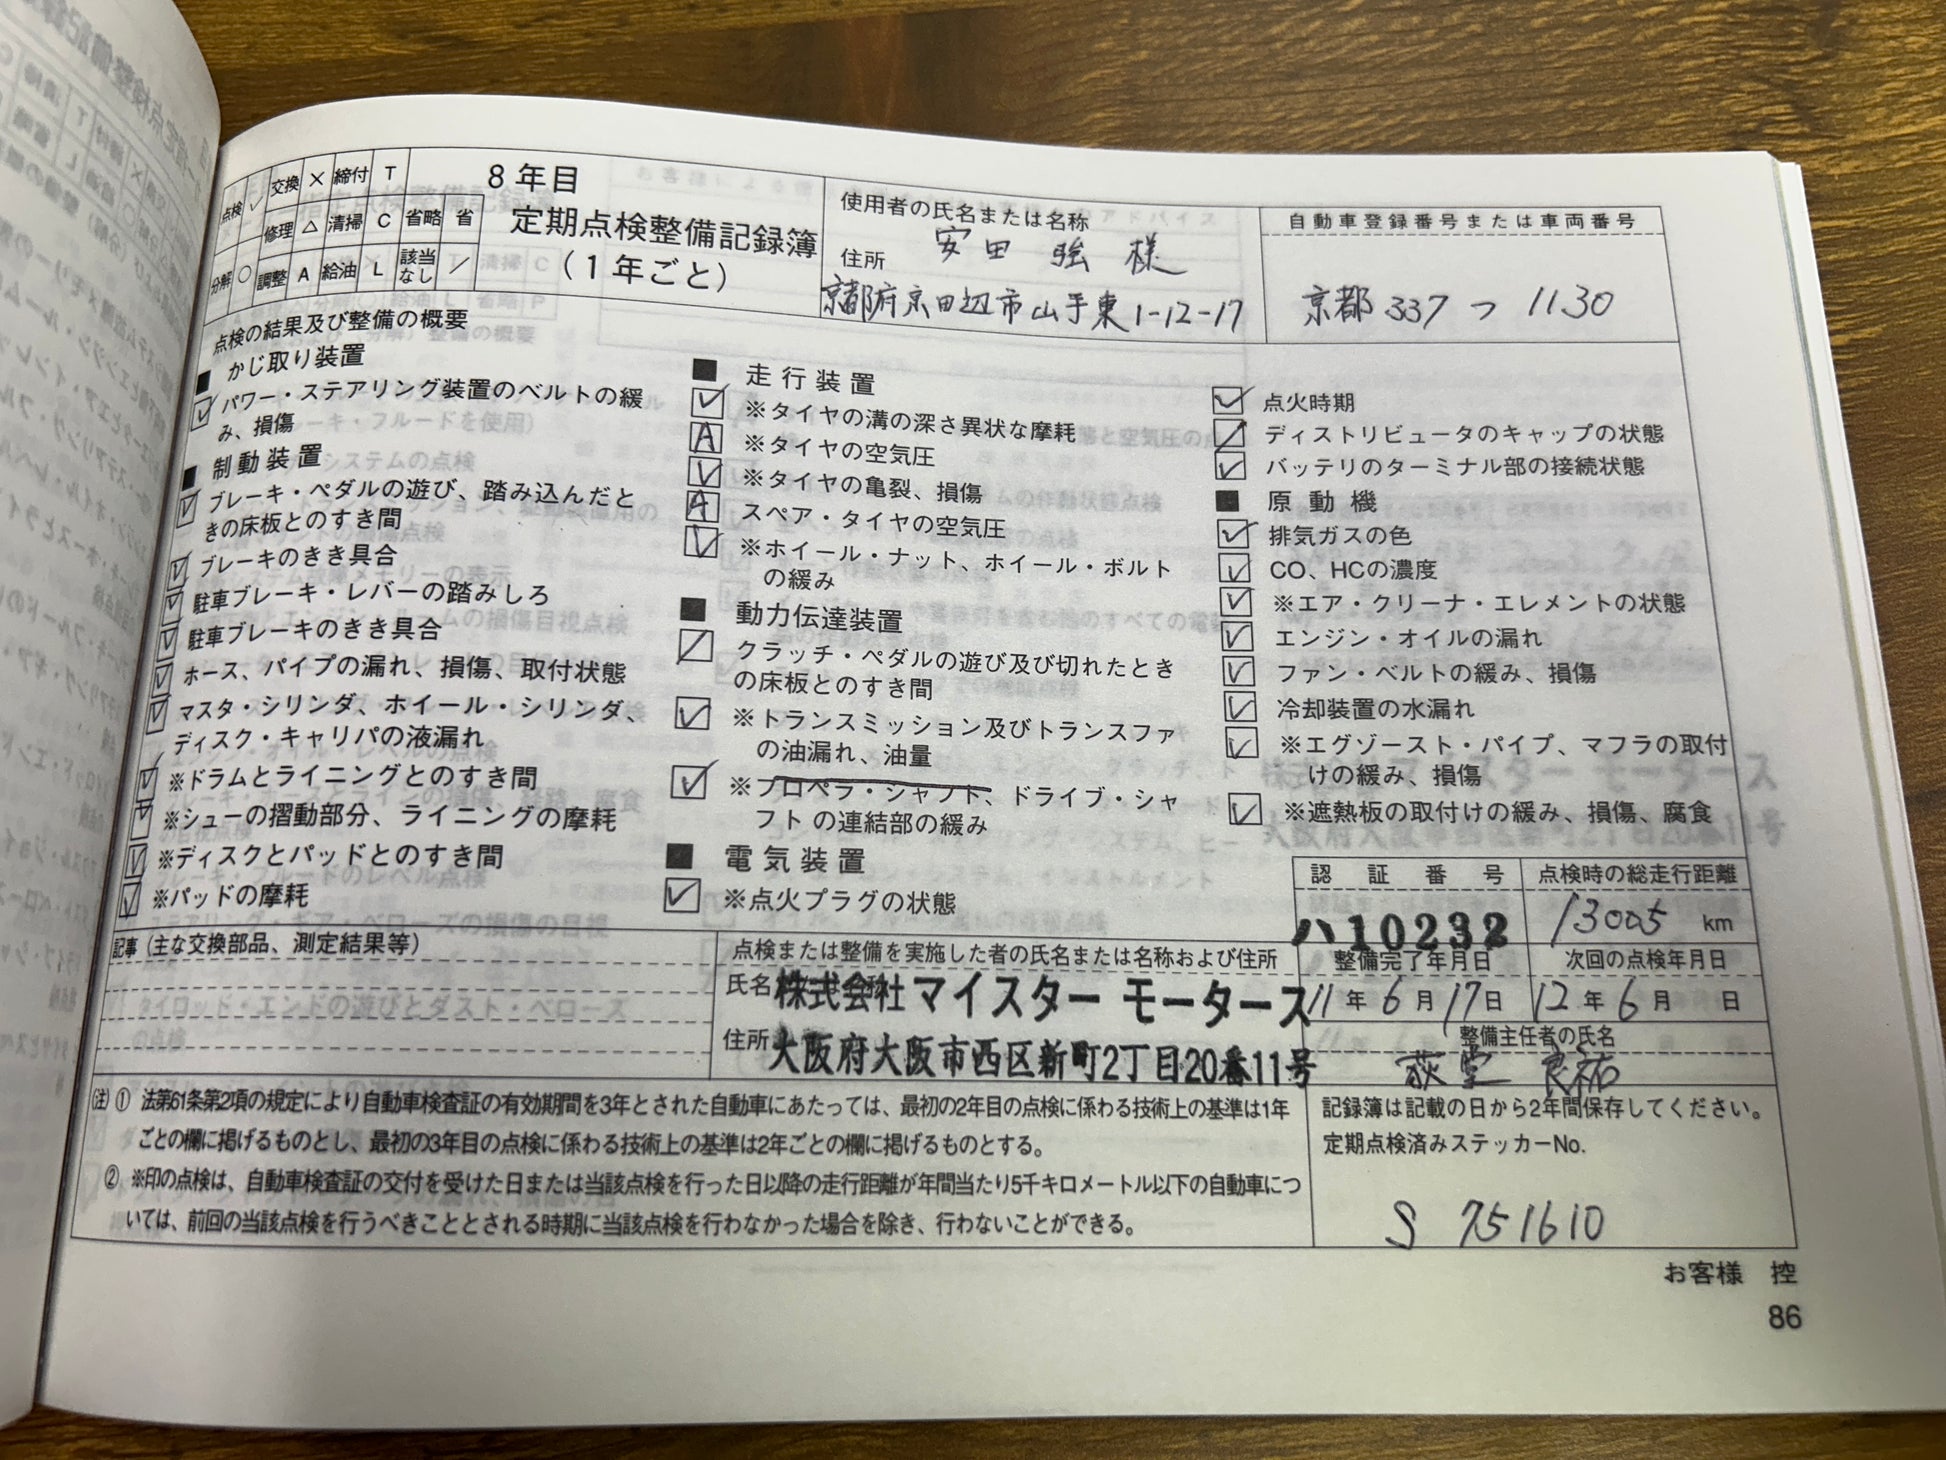 点検 ✓ 交換 × 締付 T
修理 △ 清掃 C 省略 省
分解 ○ 調整 A 給油 L 該当なし ／
8年目
定期点検整備記録簿
(1年ごと)
使用者の氏名または名称
安田 強 様
住所
京都府京田辺市山手東1-12-17
自動車登録番号または車両番号
京都 337 つ 1130
点検の結果及び整備の概要
■ かじ取り装置
✓ パワー・ステアリング装置のベルトの緩
み、損傷
■ 制動装置
✓ ブレーキ・ペダルの遊び、踏み込んだと
きの床板とのすき間
✓ ブレーキのきき具合
✓ 駐車ブレーキ・レバーの踏みしろ
✓ 駐車ブレーキのきき具合
✓ ホース、パイプの漏れ、損傷、取付状態
✓ マスタ・シリンダ、ホイール・シリンダ、
ディスク・キャリパの液漏れ
✓ ※ドラムとライニングとのすき間
✓ ※シューの摺動部分、ライニングの摩耗
✓ ※ディスクとパッドとのすき間
✓ ※パッドの摩耗
■ 走行装置
✓ ※タイヤの溝の深さ異状な摩耗
A ※タイヤの空気圧
✓ ※タイヤの亀裂、損傷
A スペア・タイヤの空気圧
✓ ※ホイール・ナット、ホイール・ボルト
の緩み
■ 動力伝達装置
／ クラッチ・ペダルの遊び及び切れたとき
の床板とのすき間
✓ ※トランスミッション及びトランスファ
の油漏れ、油量
✓ ※プロペラ・シャフト、ドライブ・シャ
フトの連結部の緩み
■ 電気装置
✓ ※点火プラグの状態
✓ 点火時期
／ ディストリビュータのキャップの状態
✓ バッテリのターミナル部の接続状態
■ 原動機
✓ 排気ガスの色
✓ CO、HCの濃度
✓ ※エア・クリーナ・エレメントの状態
✓ エンジン・オイルの漏れ
✓ ファン・ベルトの緩み、損傷
✓ 冷却装置の水漏れ
✓ ※エグゾースト・パイプ、マフラの取付
けの緩み、損傷
✓ ※遮熱板の取付けの緩み、損傷、腐食
記事 (主な交換部品、測定結果等)
点検または整備を実施した者の氏名または名称および住所
氏名 株式会社 マイスター モータース
住所 大阪府大阪市西区新町2丁目20番11号
認証番号
ハ10232
点検時の総走行距離
13005 km
整備完了年月日
11年6月17日
次回の点検年月日
12年6月 日
整備主任者の氏名
荻堂 良祐
(注) ① 法第61条第2項の規定により自動車検査証の有効期間を3年とされた自動車にあたっては、最初の2年目の点検に係わる技術上の基準は1年
ごとの欄に掲げるものとし、最初の3年目の点検に係わる技術上の基準は2年ごとの欄に掲げるものとする。
② ※印の点検は、自動車検査証の交付を受けた日または当該点検を行った日以降の走行距離が年間当たり5千キロメートル以下の自動車につ
いては、前回の当該点検を行うべきこととされる時期に当該点検を行わなかった場合を除き、行わないことができる。
記録簿は記載の日から2年間保存してください。
定期点検済みステッカーNo.
S 751610
お客様 控
86